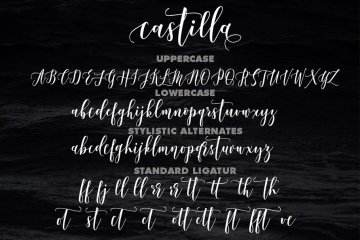 castilla
UPPERCASE
ABCDEFGHIJKLMNOPQRSTUVWXYZ
LOWERCASE
abcdefghijklmnopqrstuvwxyz
STYLISTIC ALTERNATES
abcdefghijklmnopqrstuvwxyz
STANDARD LIGATUR
ff fj ll ll rr rr tt th th